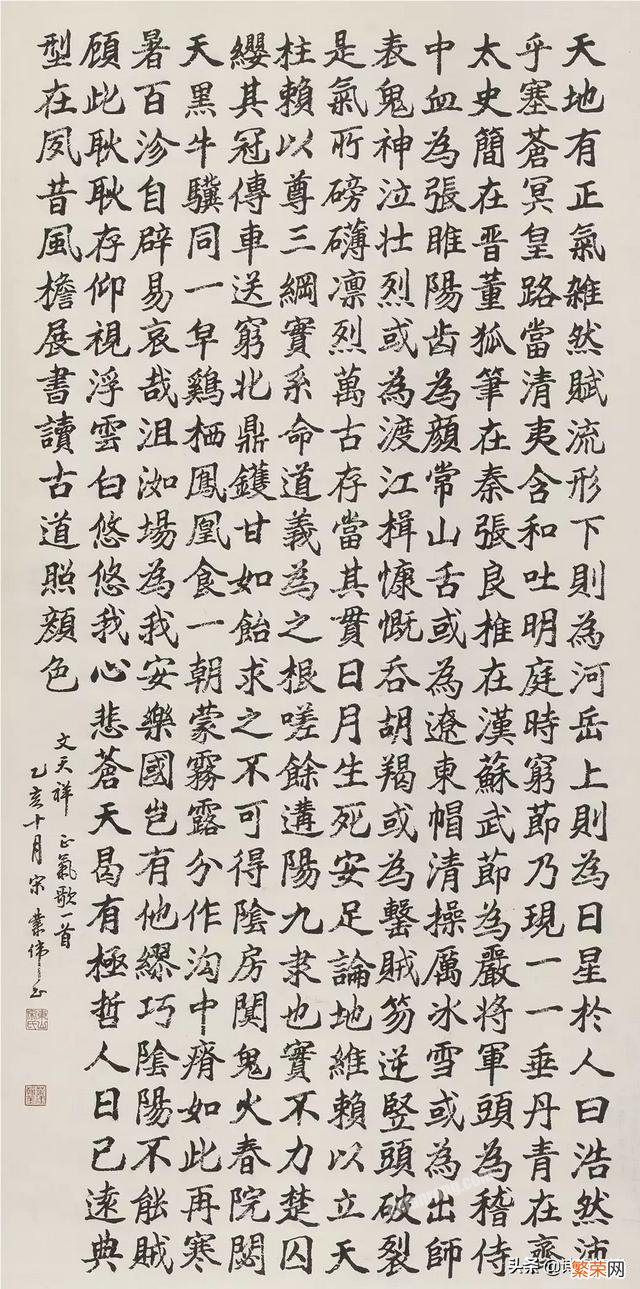 天地有正氣雜然賦流形下則為河岳上則為日星於人曰浩然沛
乎塞蒼冥皇路當清夷含和吐明庭時窮節乃現一一垂丹青在齊
太史簡在晋董狐筆在秦張良椎在漢蘇武節為嚴將軍頭為稽侍
中血為張睢陽齿為顏常山舌或為遼東帽清操厲冰雪或為出師
表鬼神泣壯烈或為渡江楫慷慨吞胡羯或為擊賊笏逆竪頭破裂
是氣所磅礴凛烈萬古存當其貫日月生死安足論地維賴以立天
柱賴以尊三綱實系命道義為之根嗟餘遘陽九隶也實不力楚囚
纓其冠傳車送窮北鼎鑊甘如飴求之不可得陰房闃鬼火春院閟
天黑牛驥同一皁鷄栖鳳凰食一朝蒙霧露分作沟中瘠如此再寒
暑百沴自辟易哀哉沮洳場為我安樂國岂有他繆巧陰陽不能賊
顧此耿耿存仰視浮雲白悠悠我心悲蒼天曷有極哲人日已遠典
型在夙昔風檐展書讀古道照顏色
文天祥 正氣歌一首
乙亥十月宋業偉書
头条 @诗
繁荣网